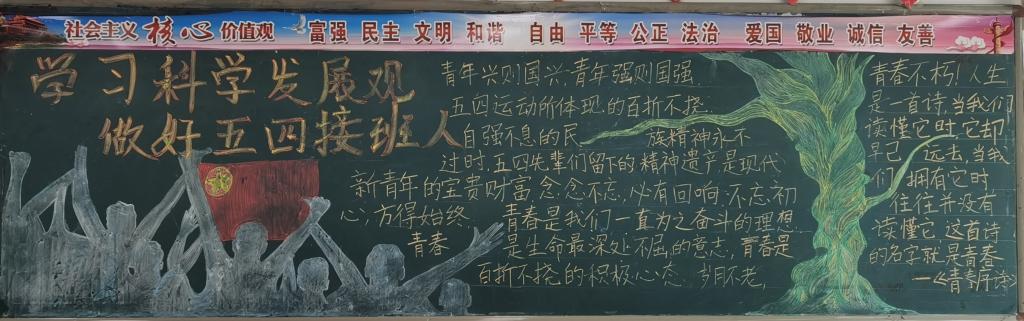 社会主义 核心 价值观 富强 民主 文明 和谐 自由 平等 公正 法治 爱国 敬业 诚信 友善
学习科学发展观
做好五四接班人
青年兴则国兴 青年强则国强
五四运动所体现的百折不挠
自强不息的民 族精神永不
过时，五四先辈们留下的精神遗产是现代
新青年的宝贵财富，念念不忘，必有回响，不忘初
心，方得始终。
青春是我们一直为之奋斗的理想
青春 是生命最深处不屈的意志，青春是
百折不挠的积极心态。岁月不老，
青春不朽！人生
是一首诗，当我们
读懂它时，它却
早已 远去，当我
们 拥有它时，
往往并没有
读懂它，这首诗
的名字就是青春
—《青春序诗》